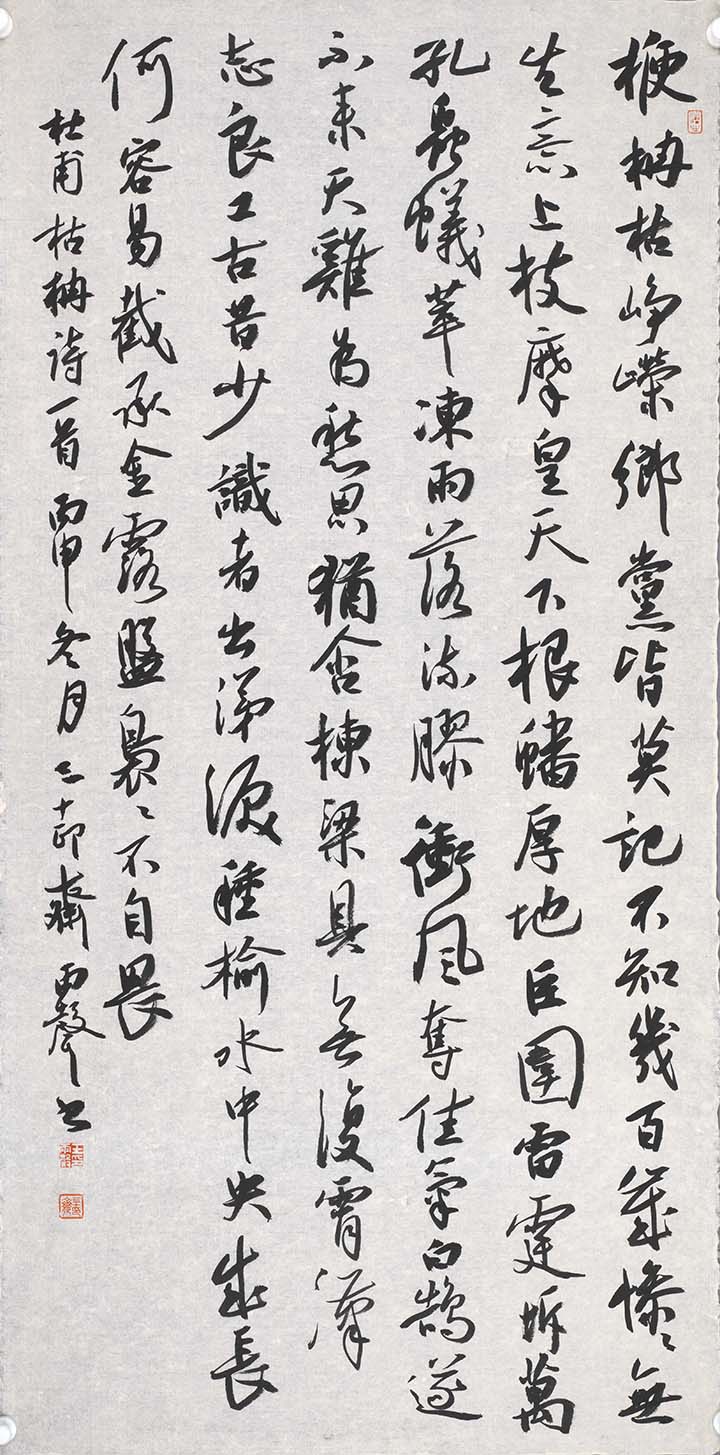 楩枏枯崢嶸鄉黨皆莫記不知幾百歲慘〻無
生意上枝摩皇天下根蟠厚地巨圍雷霆坼萬
孔蟲蟻萃凍雨落流膠衝風奪佳氣白鵠遂
不来天雞為愁思猶含棟梁具無復霄漢
志良工古昔少識者出涕淚種榆水中央成長
何容易截承金露盤裊〻不自畏
杜甫枯枏詩一首丙申冬月三十印齋書